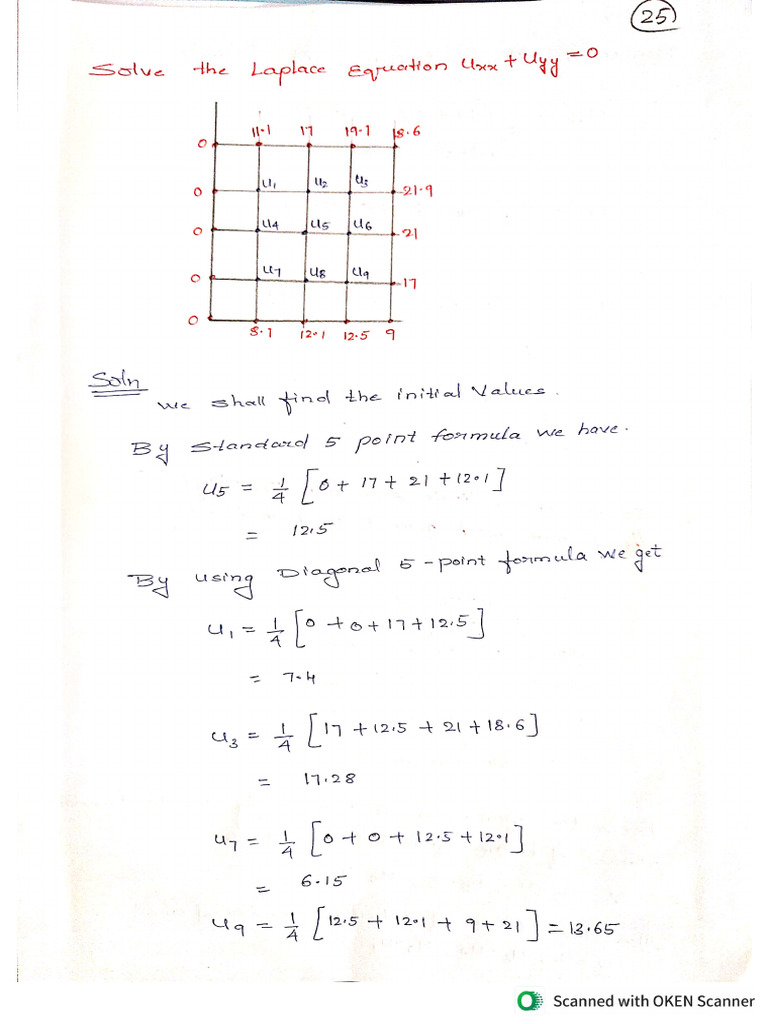 25
Solve the Laplace Equation Uxx + Uyy = 0
11.1 17 19.1 18.6
0
0 U1 U2 U3 21.9
0 U4 U5 U6 21
0 U7 U8 U9 17
0
8.1 12.1 12.5 9
Soln
We shall find the initial values.
By Standard 5 point formula we have.
U5 = 1/4 [0 + 17 + 21 + 12.1]
= 12.5
By using Diagonal 5-point formula we get
U1 = 1/4 [0 + 0 + 17 + 12.5]
= 7.4
U3 = 1/4 [17 + 12.5 + 21 + 18.6]
= 17.28
U7 = 1/4 [0 + 0 + 12.5 + 12.1]
= 6.15
U9 = 1/4 [12.5 + 12.1 + 9 + 21] = 13.65
Scanned with OKEN Scanner